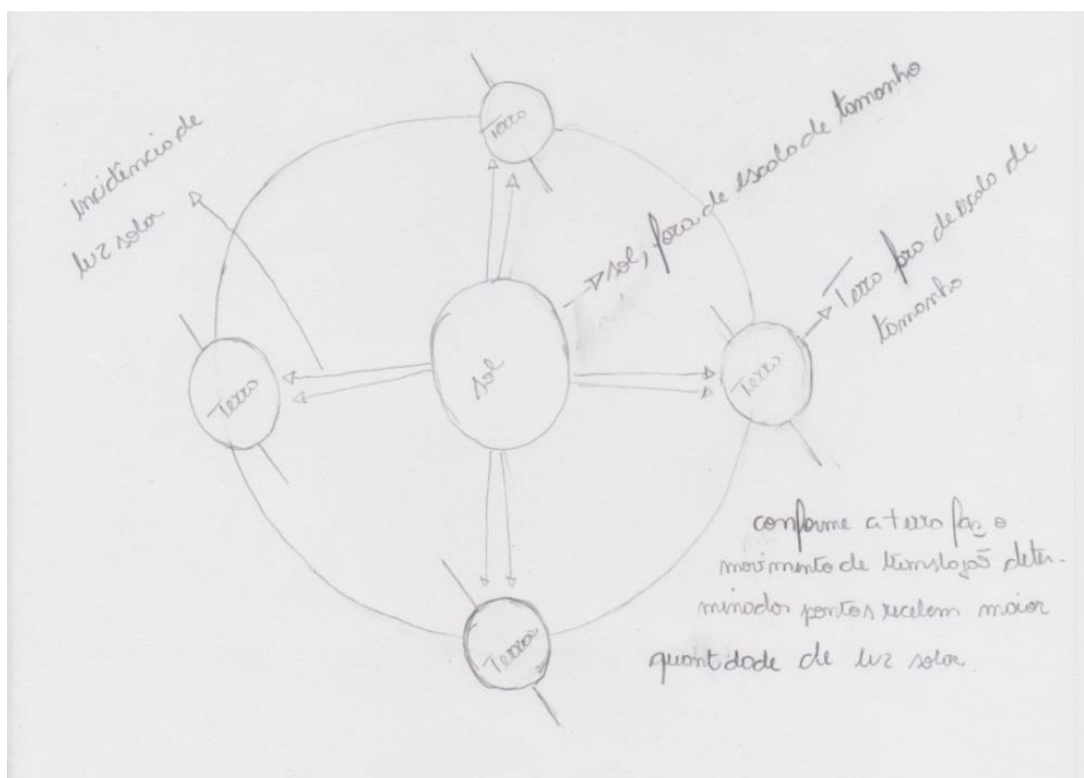 Terra
incidência de
luz solar
sol, fora de escala de tamanho
Terra fora de escala de
tamanho
Terra
sol
Terra
Terra
conforme a terra faz o
movimento de translação deter-
minados pontos recebem maior
quantdade de luz solar.